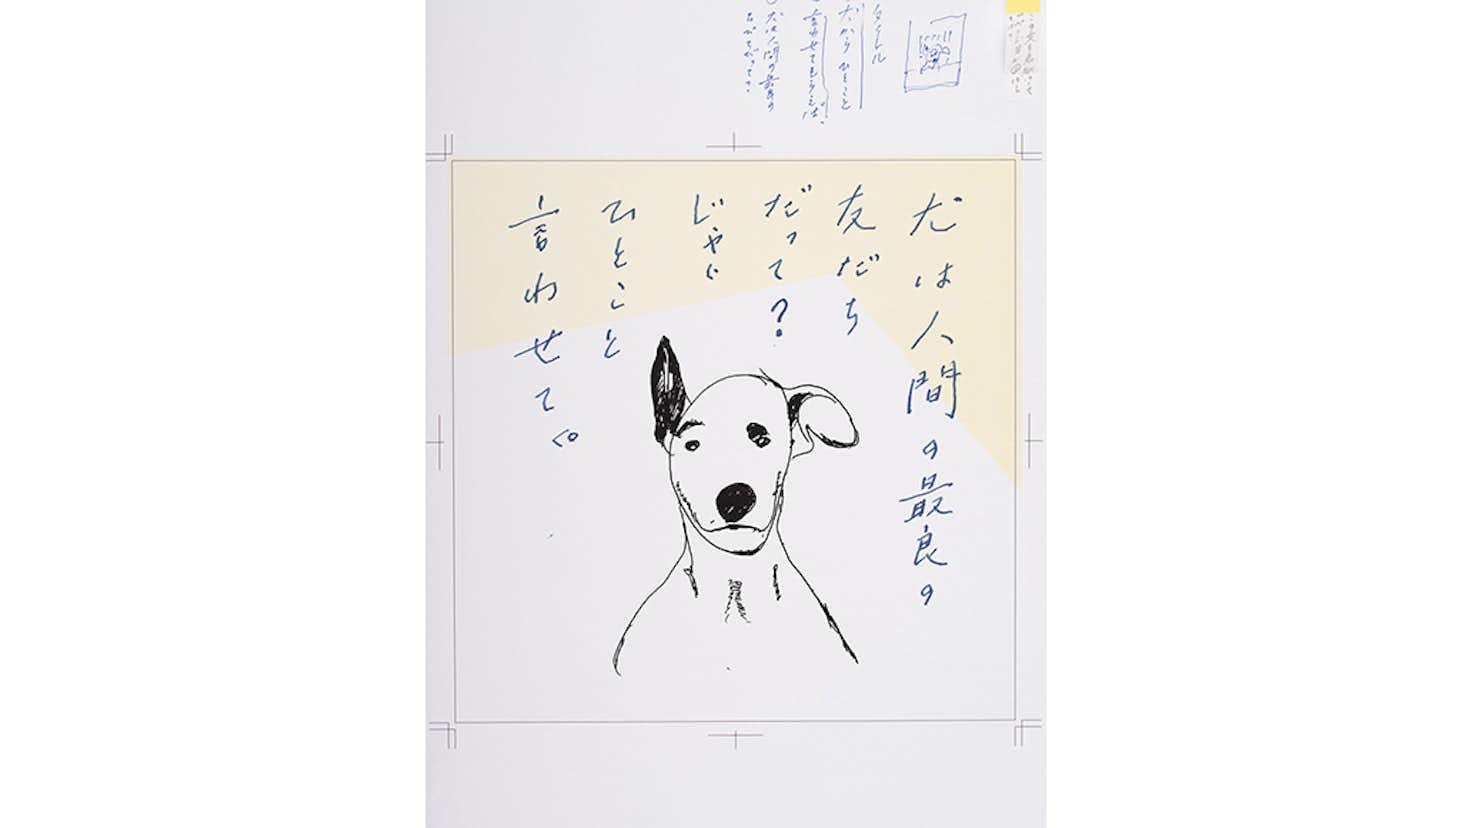 タイトル
犬からひとこと
言わせてもらえば、
犬は人間の最良の
犬は人間の最良の
友だち
だって？
じゃ、
ひとこと
言わせて。